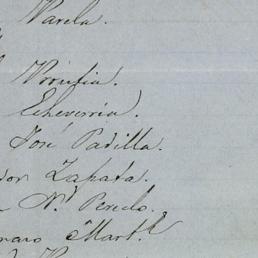 Varela.
Urrutia.
Echeverria.
José Padilla.
dor Zapata.
N. Peredo.
naro Mart.